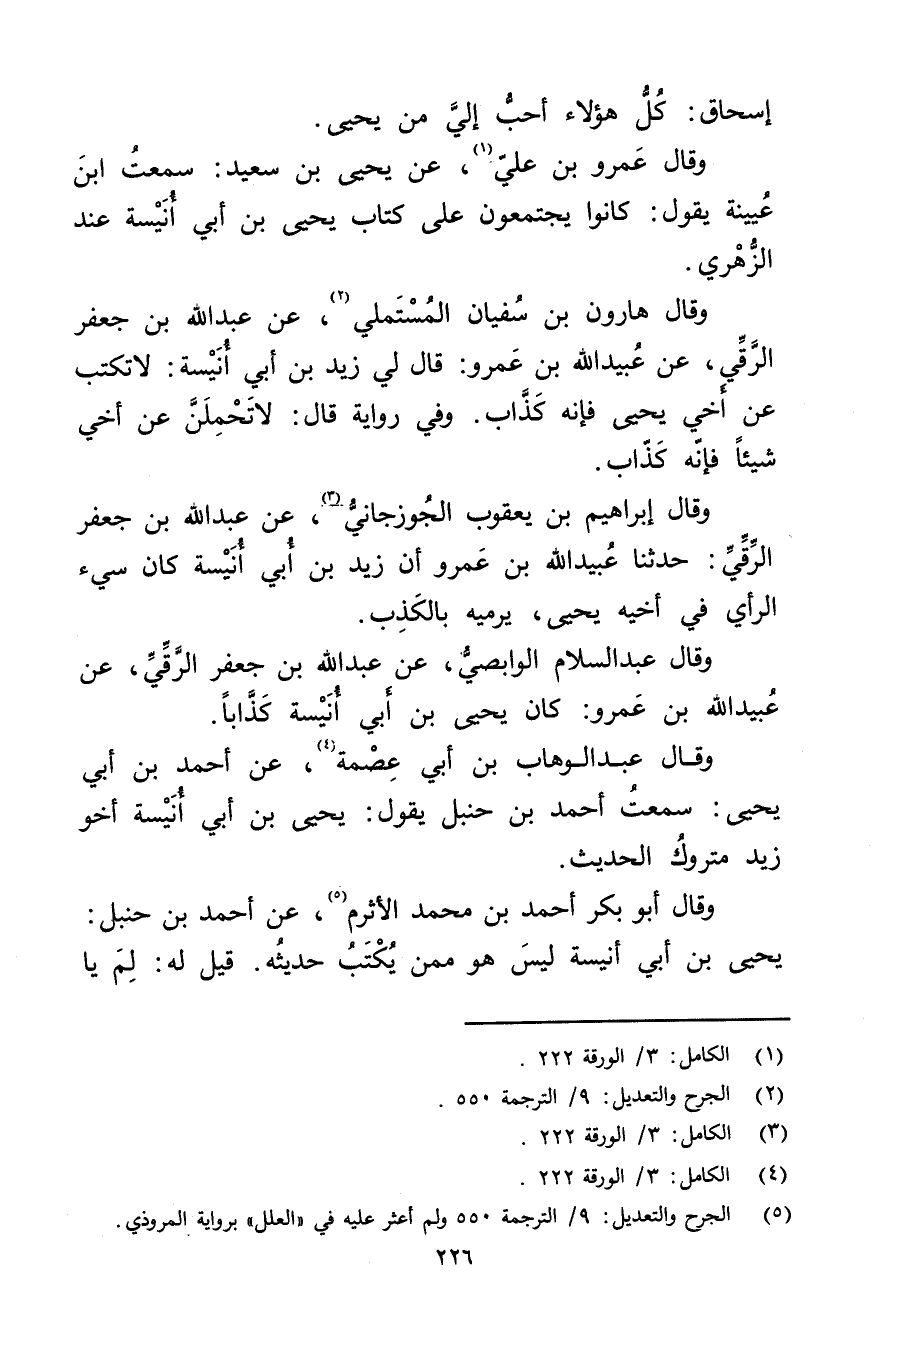 إسحاق: كُلُّ هؤلاء أحبُّ إليَّ من يحيى.
وقال عَمرو بن عليّ(١)، عن يحيى بن سعيد: سمعتُ ابنَ
عُيينة يقول: كانوا يجتمعون على كتاب يحيى بن أبي أُنَيْسة عند
الزُّهْري.
وقال هارون بن سُفيان المُسْتَملي(٢)، عن عبدالله بن جعفر
الرَّقِّي، عن عُبيدالله بن عَمرو: قال لي زيد بن أبي أُنَيْسة: لاتكتب
عن أَخي يحيى فإنه كَذَّاب. وفي رواية قال: لاتَحْمِلَنَّ عن أخي
شيئاً فإنّه كَذّاب.
وقال إبراهيم بن يعقوب الجُوزجانيُّ(٣)، عن عبدالله بن جعفر
الرَّقِّيِّ: حدثنا عُبيدالله بن عَمرو أن زيد بن أَبي أُنَيْسة كان سيء
الرأي في أخيه يحيى، يرميه بالكَذِب.
وقال عبدالسلام الوابصيُّ، عن عبدالله بن جعفر الرَّقِّيِّ، عن
عُبيدالله بن عَمرو: كان يحيى بن أَبي أُنَيْسة كَذَّاباً.
وقـال عبـدالـوهاب بن أبي عِصْمة(٤)، عن أحمد بن أبي
يحيى: سمعتُ أحمد بن حنبل يقول: يحيى بن أبي أُنَيْسة أخو
زيد متروكُ الحديث.
وقال أبو بكر أحمد بن محمد الأثرم(٥)، عن أحمد بن حنبل:
يحيى بن أبي أنيسة ليسَ هو ممن يُكْتَبُ حديثُه. قيل له: لِمَ يا
(١) الكامل: ٣/ الورقة ٢٢٢ .
(٢) الجرح والتعديل: ٩/ الترجمة ٥٥٠ .
(٣) الكامل: ٣/ الورقة ٢٢٢ .
(٤) الكامل: ٣/ الورقة ٢٢٢ .
(٥) الجرح والتعديل: ٩/ الترجمة ٥٥٠ ولم أعثر عليه في «العلل» برواية المروذي.
٢٢٦